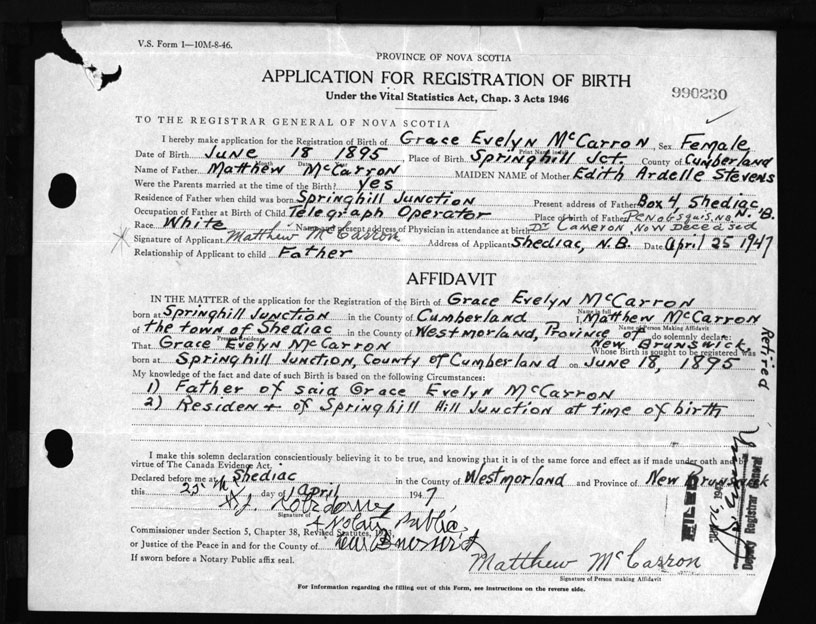 V.S. Form 1—10M-8-46.
PROVINCE OF NOVA SCOTIA
APPLICATION FOR REGISTRATION OF BIRTH
Under the Vital Statistics Act, Chap. 3 Acts 1946
990230
TO THE REGISTRAR GENERAL OF NOVA SCOTIA
I hereby make application for the Registration of Birth of Grace Evelyn McCarron, Sex Female
Print Name in full
Date of Birth June 18 1895, Place of Birth Springhill Jct. County of Cumberland
Month Day Year
Name of Father Matthew McCarron MAIDEN NAME of Mother Edith Ardelle Stevens
Were the Parents married at the time of the Birth? yes
Residence of Father when child was born Springhill Junction Present address of Father Box 4, Shediac, N.B.
Occupation of Father at Birth of Child Telegraph Operator Place of birth of Father Penobsquis, N.B.
Race White Name and present address of Physician in attendance at birth Dr Cameron, now deceased
Signature of Applicant Matthew McCarron Address of Applicant Shediac, N.B. Date April 25 1947
Relationship of Applicant to child Father
AFFIDAVIT
IN THE MATTER of the application for the Registration of the Birth of Grace Evelyn McCarron
Name in full
born at Springhill Junction in the County of Cumberland I, Matthew McCarron
Name of Person Making Affidavit
of the town of Shediac in the County of Westmorland, Province of New Brunswick, do solemnly declare:
Present Residence
That Grace Evelyn McCarron Whose Birth is sought to be registered was
born at Springhill Junction, County of Cumberland on June 18, 1895
My knowledge of the fact and date of such Birth is based on the following Circumstances:
1) Father of said Grace Evelyn McCarron
2) Resident of Springhill Hill Junction at time of birth
I make this solemn declaration conscientiously believing it to be true, and knowing that it is of the same force and effect as if made under oath and by
virtue of The Canada Evidence Act.
Declared before me at Shediac in the County of Westmorland and Province of New Brunswick
this 25th day of April 1947
Signature of
A Notary Public
Commissioner under Section 5, Chapter 38, Revised Statutes,
or Justice of the Peace in and for the County of New Brunswick
If sworn before a Notary Public affix seal.
Matthew McCarron
Signature of Person making Affidavit
For Information regarding the filling out of this Form, see instructions on the reverse side.
Retired
FILED
Deputy Registrar General